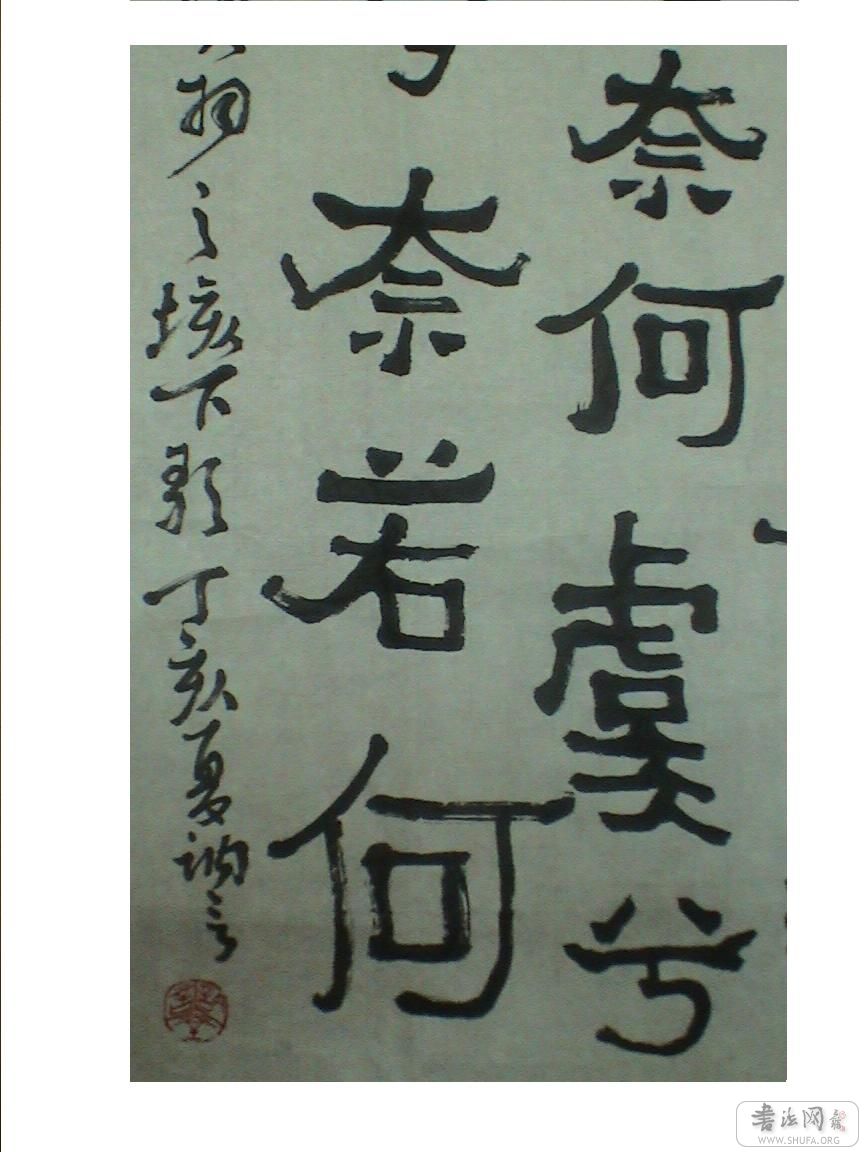 奈何虞兮
奈若何
羽之垓下歌丁亥夏訥言
書法网
WWW.SHUFA.ORG